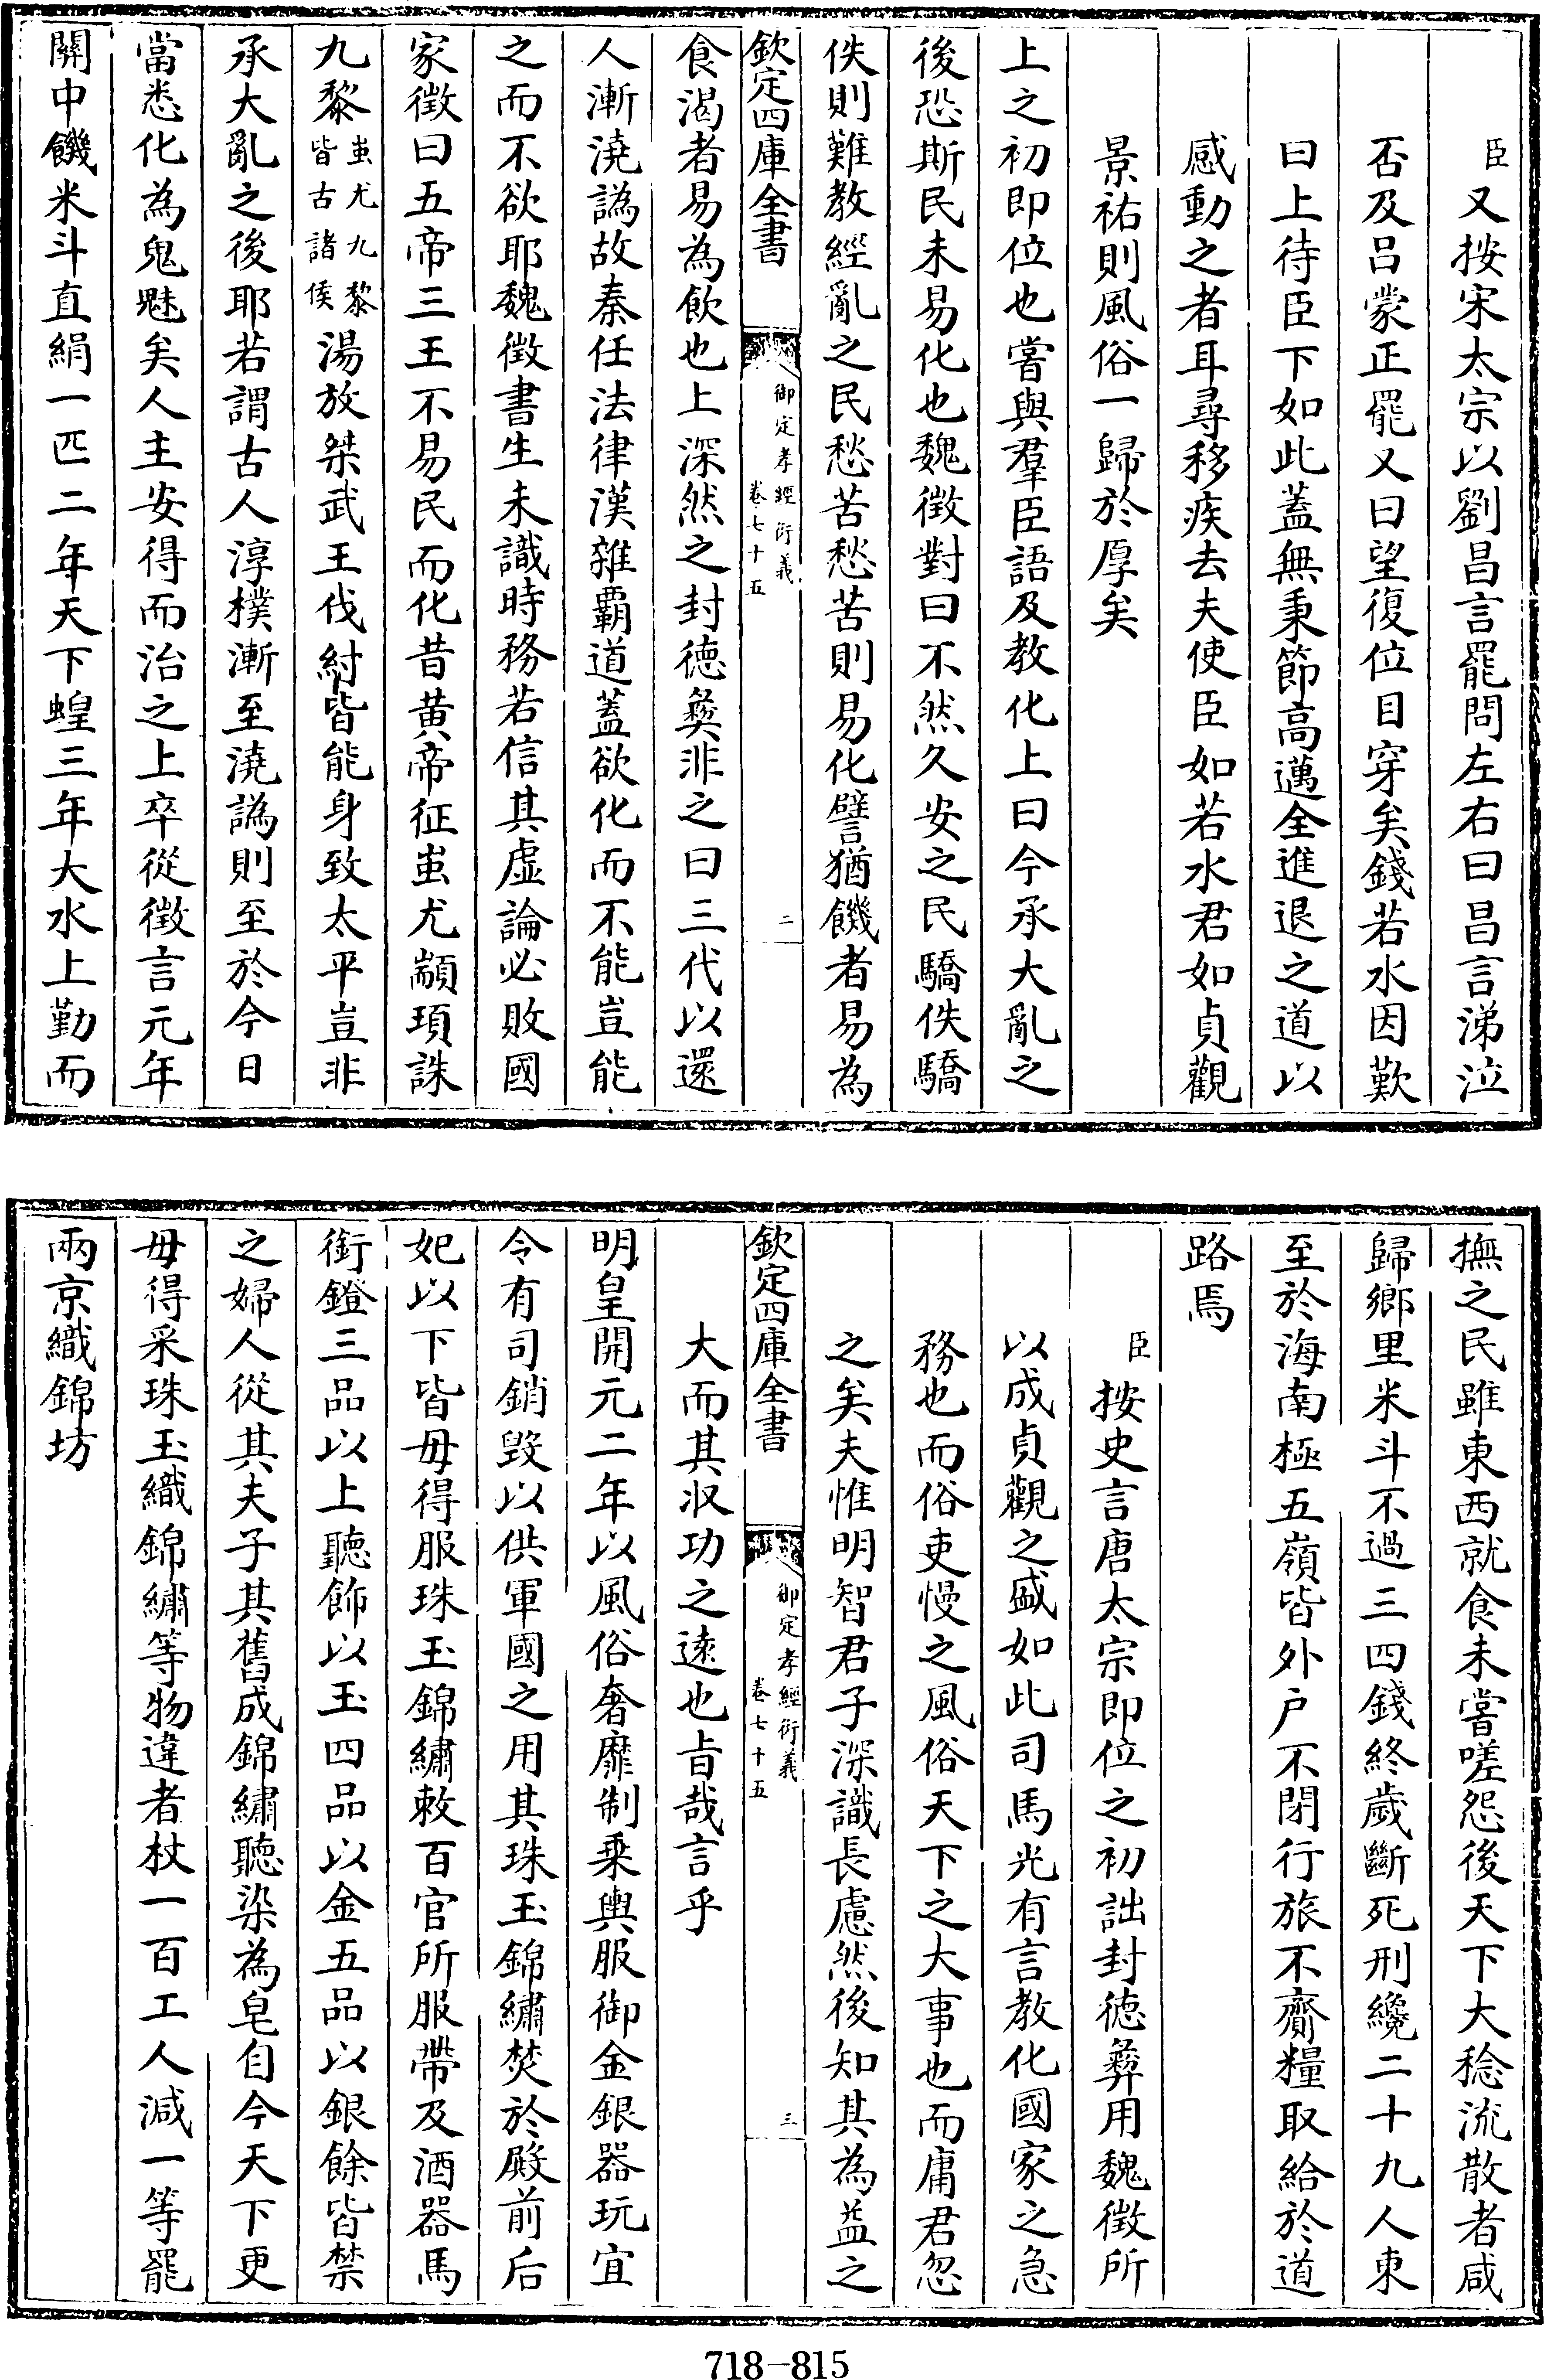 臣又按宋太宗以劉昌言罷問左右曰昌言涕泣
否及呂蒙正罷又曰望復位目穿矣錢若水因歎
曰上待臣下如此蓋無秉節高邁全進退之道以
感動之者耳尋移疾去夫使臣如若水君如貞觀
景祐則風俗一歸於厚矣
上之初即位也嘗與羣臣語及教化上曰今承大亂之
後恐斯民未易化也魏徵對曰不然久安之民驕佚驕
佚則難教經亂之民愁苦愁苦則易化譬猶饑者易為
欽定四庫全書
御定孝經衍義
卷七十五
二
食渴者易為飲也上深然之封德彝非之曰三代以還
人漸澆譌故秦任法律漢雜霸道蓋欲化而不能豈能
之而不欲耶魏徵書生未識時務若信其虛論必敗國
家徵曰五帝三王不易民而化昔黃帝征蚩尤顓頊誅
九黎蚩尤九黎皆古諸侯湯放桀武王伐紂皆能身致太平豈非
承大亂之後耶若謂古人淳樸漸至澆譌則至於今日
當悉化為鬼魅矣人主安得而治之上卒從徵言元年
關中饑米斗直絹一匹二年天下蝗三年大水上勤而
撫之民雖東西就食未嘗嗟怨後天下大稔流散者咸
歸鄉里米斗不過三四錢終歲斷死刑纔二十九人東
至於海南極五嶺皆外戶不閉行旅不齎糧取給於道
路焉
臣按史言唐太宗即位之初詘封德彝用魏徵所
以成貞觀之盛如此司馬光有言教化國家之急
務也而俗吏慢之風俗天下之大事也而庸君忽
之矣夫惟明智君子深識長慮然後知其為益之
欽定四庫全書
御定孝經衍義
卷七十五
三
大而其收功之遠也旨哉言乎
明皇開元二年以風俗奢靡制乘輿服御金銀器玩宜
令有司銷毀以供軍國之用其珠玉錦繡焚於殿前后
妃以下皆毋得服珠玉錦繡敕百官所服帶及酒器馬
銜鐙三品以上聽飾以玉四品以金五品以銀餘皆禁
之婦人從其夫子其舊成錦繡聽染為皂自今天下更
毋得采珠玉織錦繡等物違者杖一百工人減一等罷
兩京織錦坊
718-815